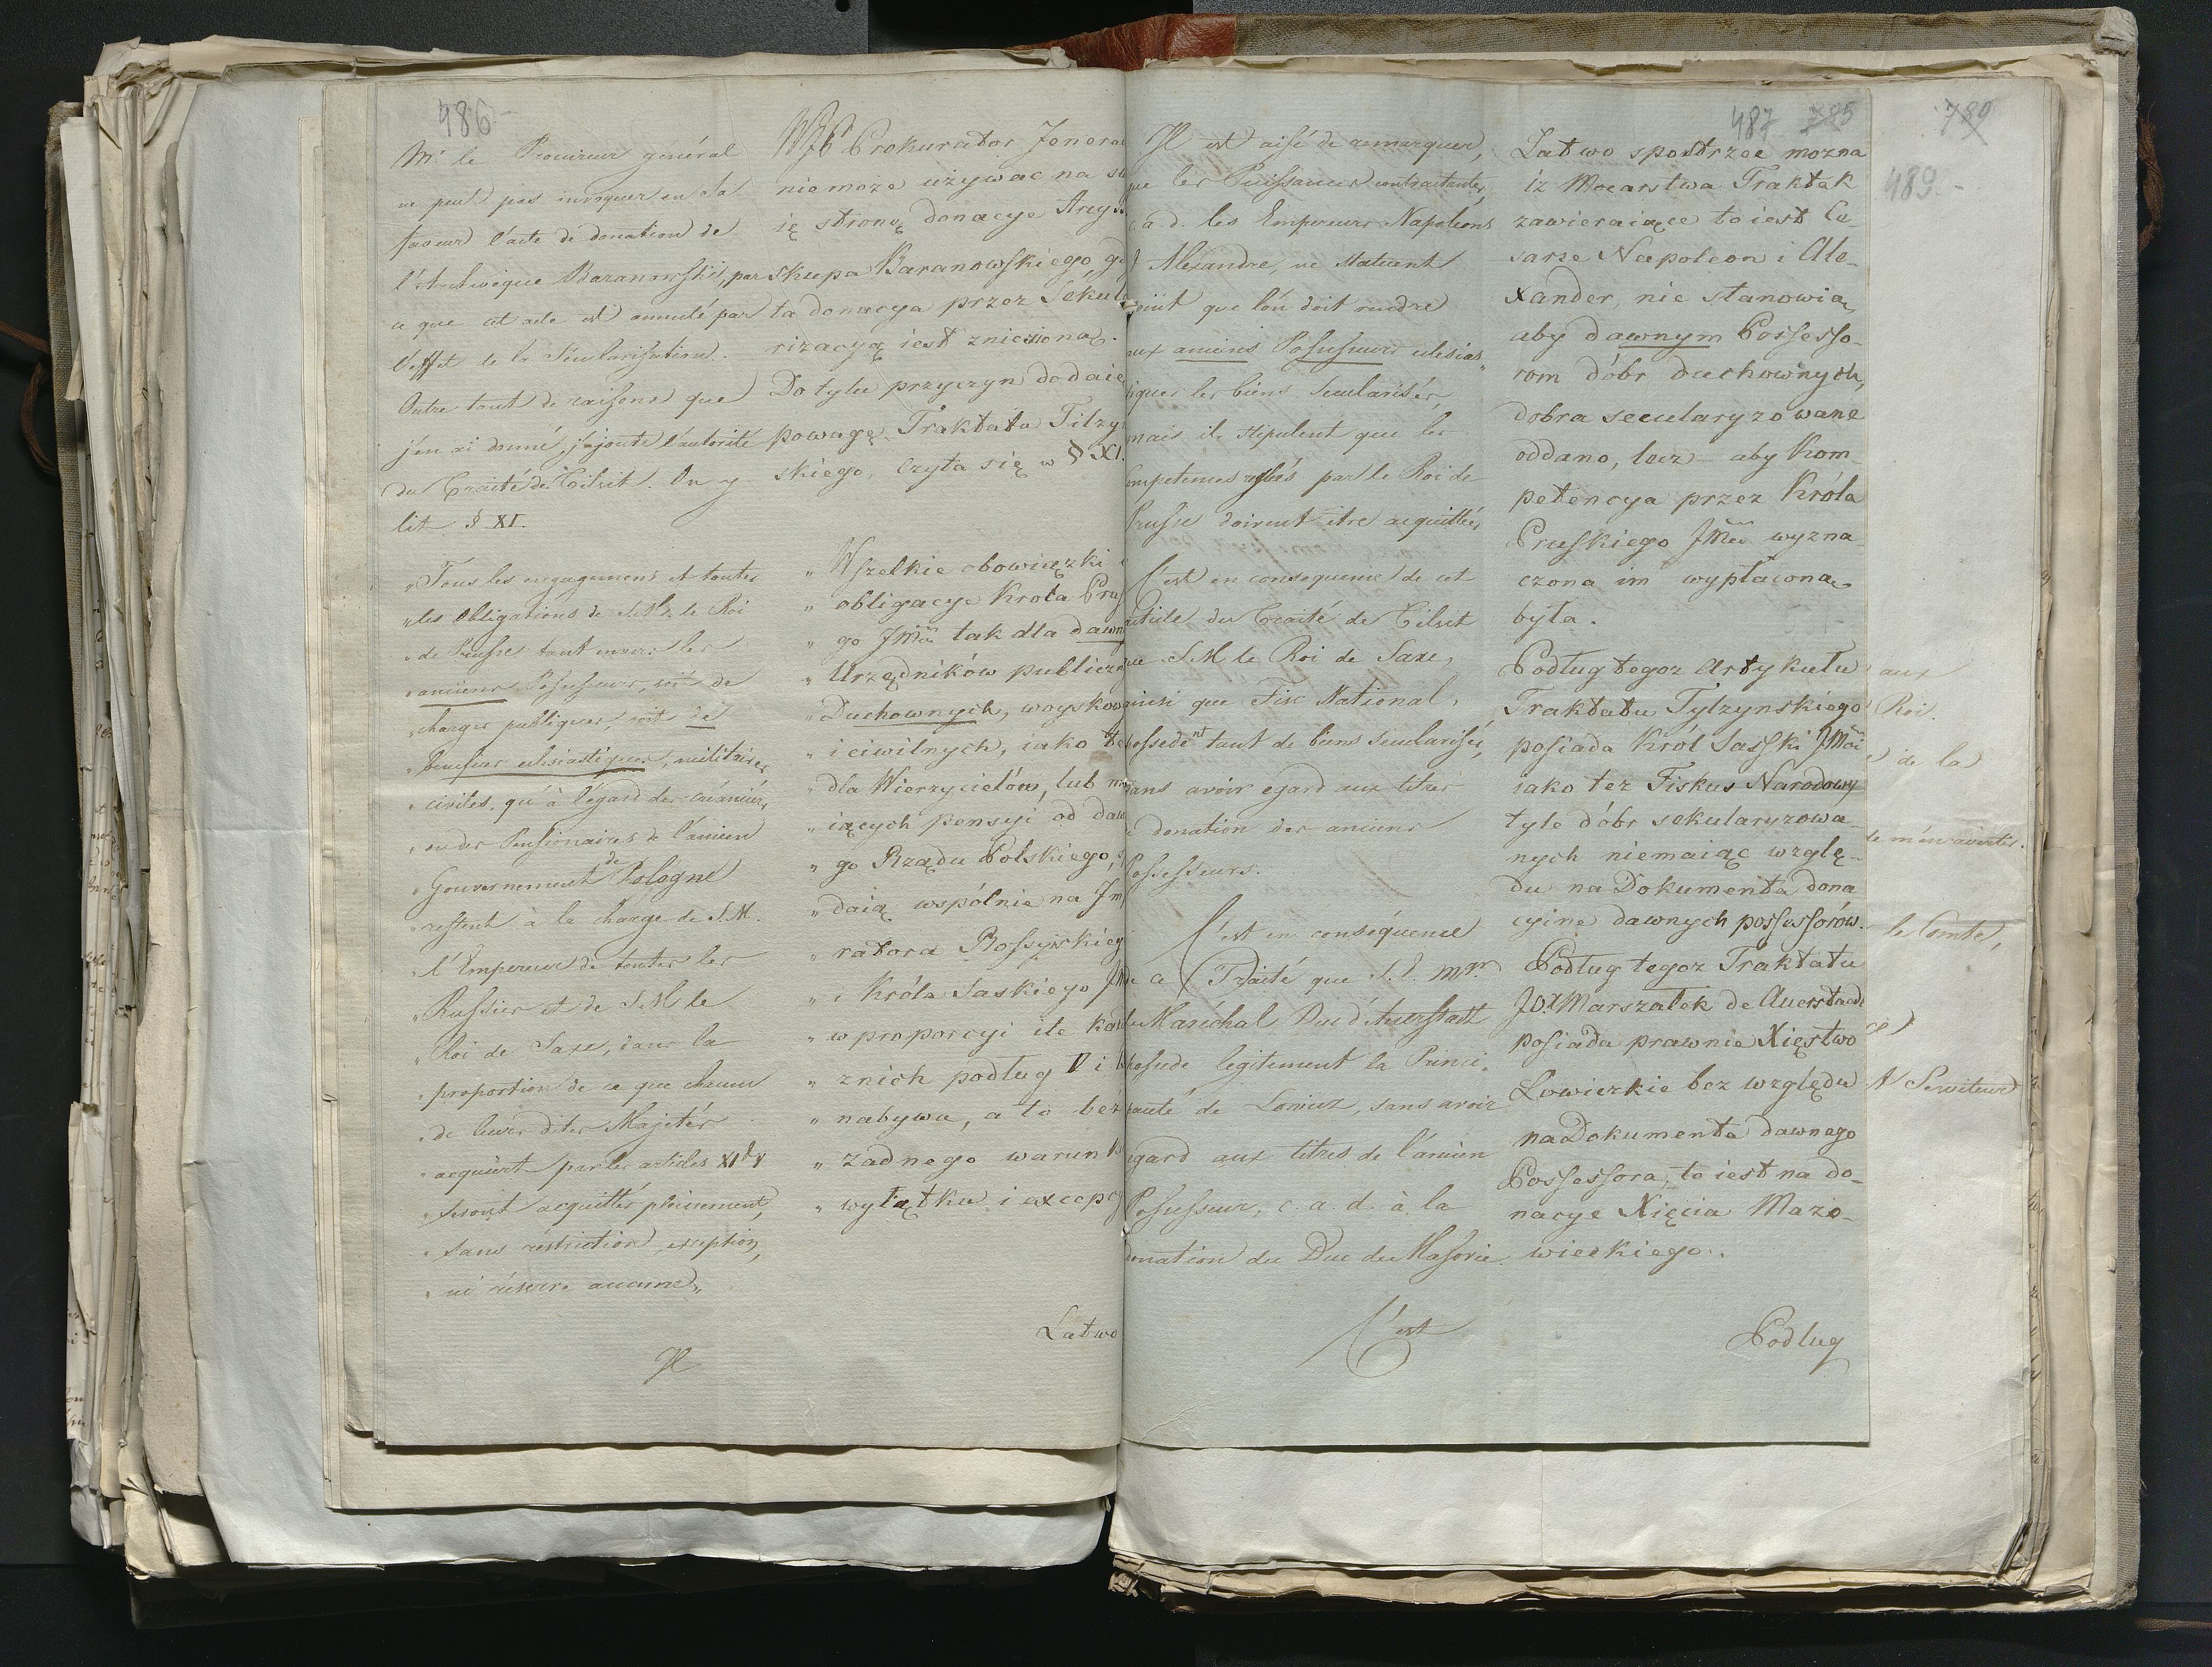 486
Mr. le Procureur général
ne peut pas invoquer en sa
faveur l'acte de donation de
l'Archevêque Baranowski, par
ce que cet acte est annulé par
l'effet de la Sécularisation.
Outre tout de raisons que
j'en ai donné, j'ajoute l'autorité
du Traité de Tilsit. On y
lit § XI.
„Tous les engagemens et toutes
„les Obligations de S.M. le Roi
„de Prusse tant envers les
„anciens Possesseurs, soit de
„charges publiques, soit de
„benefices eclesiastiques, militaires,
„civiles, qu'à l'égard des créanciers,
„ou des Pensionaires de l'ancien
„Gouvernement de Pologne
„restent à la charge de S.M.
„l'Empereur de toutes les
„Russies et de S.M. le
„Roi de Saxe, dans la
„proportion de ce que chacun
„de leurs dites Majestés
„acquiert par les articles
„seront acquittés pleinement,
„sans restriction, exception,
„ni réserve aucune„
Il
Prokurator Jenera
niemoże używac na sw
ię stronę donacye Arcy
skupa Baranowskiego, g
ta donacya przez Sekula
rizacyą iest zniesioną.
Do tylu przyczyn dodaię
powagę Traktatu Tilzy
skiego, Czyta się w § XI.
„Wszelkie obowiązki
„obligacye Krola Prus
„go JMci tak dla dawn
„Urzędników publiczn
„Duchownych, woyskow
„i ciwilnych, iako te
„dla Wierzycielów, lub m
„iących pensyi od daw
„go Rządu Polskiego,
„daią wspólnie na Jm
„ratora Rossyiskieg
„i Króla Saskiego JM
„w proporcyi ile każ
„znich podług V i
„nabywa, a to bez
„żadnego warunk
„wyłątku i excepcy
Łatwo
487 785
Il est aisé de remarquer,
que les Puissances contractantes,
c.a.d. les Empereurs Napoléons
et Alexandre, ne statuent
point que l'on doit rendre
aux anciens Possesseurs eclesias„
tiques les biens Secularisés,
mais ils stipulent que les
competences reglés par le Roi de
Prusse doivent être acquittés,
C'est en consequence de cet
article du Traité de Tilsit
que S.M. le Roi de Saxe,
ainsi que Fisc National,
possedent tant de biens secularisés,
sans avoir egard aux titres
de donation des anciens
Possesseurs.
C'est en conséquence
de ce Traité que S.E. Mr.
le Maréchal Duc d'Auerstadt
possede legitement la Princi„
pauté de Lowicz, sans avoir
egard aux titres de l'ancien
Possesseur, c.a.d. à la
donation du Duc de Masovie.
C'est
Łatwo spostrzec można
iż Mocarstwa Traktat
zawieraiące to iest Ce„
sarze Napoleon i Ale„
xander, nie stanowią
aby dawnym Possesso„
rom dóbr duchownych,
dobra secularyzowane
oddano, lecz aby Kom„
petencya przez Króla
Pruskiego JMci wyzna„
czona im wypłaconą
była.
Podług tegoż Artykułu
Traktatu Tylzynskiego
posiada Król Saski JMci
iako też Fiskus Narodowy
tyle dóbr sekularyzowa„
nych niemaiąc wzglę„
du na Dokumenta dona
cyine dawnych possessorów.
Podług tegoż Traktatu
JOX Marszałek de Auerstaedt
posiada prawnie Xięstwo
Łowiczkie bez względu
na Dokumenta dawnego
Possessora, to iest na do„
nacye Xięcia Mazo„
wieckiego.
Podług
789
489.-
aux
Roi.
de la
de m'en avertir.
le Comte,
Serviteur